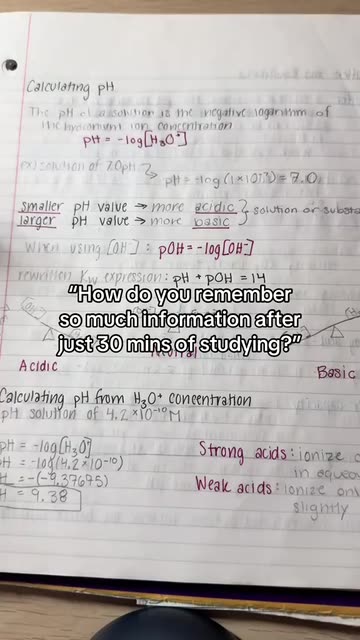 Calculating pH
The pH of a solution is the negative logarithm of
the hydronium ion concentration
pH = -log[H₃O⁺]
ex) solution of 7.0 pH
pH = -log(1×10⁻⁷) = 7.0
smaller pH value → more acidic
larger pH value → more basic
solution or substa
When using [OH⁻] : pOH = -log[OH⁻]
rewritten Kw expression: pH + pOH = 14
“How do you remember
so much information after
just 30 mins of studying?”
Acidic
Basic
Calculating pH from H₃O⁺ concentration
pH solution of 4.2×10⁻¹⁰ M
pH = -log[H₃O⁺]
pH = -log(4.2×10⁻¹⁰)
H = -(-9.37675)
H = 9.38
Strong acids: ionize
in aqueo
Weak acids: ionize on
slightly